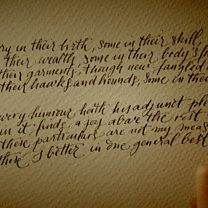 ory in their birth, some in their skill,
their wealth, some in their body's f
their garments, though new-fangled
their hawks and hounds, some in thei
very humour hath his adjunct ple
in it finds a joy above the rest
these particulars are not my meas
these I better in one general best